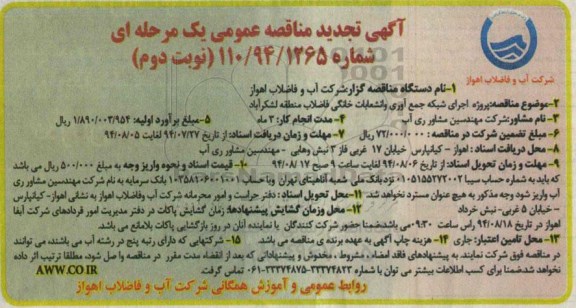 آگهی تجدید مناقصه عمومی یک مرحله ای
شماره ۱۱۰/۹۴/۱۲۶۵ (نوبت دوم)
شرکت آب و فاضلاب اهواز
۱-نام دستگاه مناقصه گزار:شرکت آب و فاضلاب اهواز
۲-موضوع مناقصه:پروژه اجرای شبکه جمع آوری وانشعابات خانگی فاضلاب منطقه لشکرآباد
۳-نام مشاور:شرکت مهندسین مشاور ری آب ۴- مدت انجام کار: ۳ ماه ۵-مبلغ برآورد اولیه: ۱/۸۹۰/۰۰۳/۹۵۴ ریال
۶- مبلغ تضمین شرکت در مناقصه : ۷۲/۰۰۰/۰۰۰ ریال ۷- مهلت و زمان دریافت اسناد: از تاریخ ۹۴/۰۷/۲۷ لغایت ۹۴/۰۸/۰۵
۸- محل دریافت اسناد: اهواز - کیانپارس خیابان ۱۷ غربی فاز ۳ نبش وهابی - مهندسین مشاور ری آب
۹- مهلت و زمان تحویل اسناد: از تاریخ ۹۴/۰۸/۰۶ لغایت ساعت ۹ صبح ۹۴/۰۸/۱۷ ۱۰- قیمت اسناد و نحوه واریز وجه به مبلغ ۵۰۰/۰۰۰ ریال می باشد
که باید به شماره حساب سیبا ۰۱۰۵۱۵۵۲۷۲۰۰۲ نزد بانک ملی شعبه آناهیتای تهران ویا حساب ۱۰۲۵۸۱۰۶۰۰۱۰۰۱ بانک سرمایه به نام شرکت مهندسین مشاور ری
آب واریز شود وجه مذکور به هیچ عنوان مسترد نخواهد شد. ۱۱-محل تحویل اسناد: دفتر حراست و امور محرمانه شرکت آب وفاضلاب اهواز به نشانی اهواز- کیانپارس
- خیابان ۵ غربی- نبش خرداد ۱۲- محل وزمان گشایش پیشنهادها: زمان گشایش پاکات در دفتر مدیریت امور قردادهای شرکت آبفا
اهواز در تاریخ ۹۴/۰۸/۱۸ راس ساعت ۰۹:۳۰ می باشدضمنا حضور شرکت کنندگان یا نماینده آنان در روز بازگشایی پاکات بلامانع می باشد.
۱۳- محل تامین اعتبار: جاری ۱۴- هزینه چاپ آگهی به عهده برنده ی مناقصه می باشد. ۱۵- شرکتهایی که دارای رتبه پنج در رشته آب می باشند، می توانند
در مناقصه فوق شرکت نمایند. به پیشنهادهای فاقد امضاء، مشروط ، مخدوش و پیشنهاداتی که بعد از انقضاء مدت مقرر در مناقصه وا صل شود، مطلقا ترتیب اثر داده
نخواهد شد،ضمنا برای کسب اطلاعات بیشتر می توان با شماره ۳۳۳۷۴۸۲۳-۳۳۳۷۴۸۷۵-۰۶۱ تماس گرفت. AWW.CO.IR
روابط عمومی و آموزش همگانی شرکت آب و فاضلاب اهواز